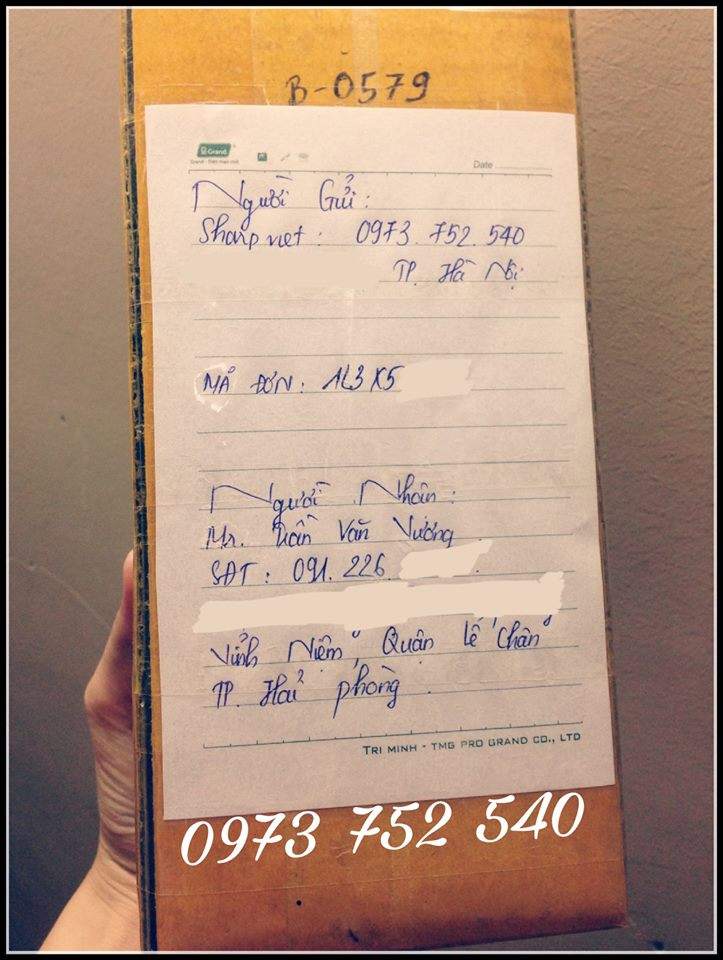 B-0579
Grand
Date
Người Gửi:
Sharp viet: 0973.752.540
TP. Hà Nội
MÃ ĐƠN: 1L3X5
Người Nhân:
Mr. Trần Văn Vương
SĐT: 091.226.
Vĩnh Niệm, Quận Lê Chân
TP. Hải phòng.
TRI MINH - TMG PRO GRAND CO., LTD
0973 752 540